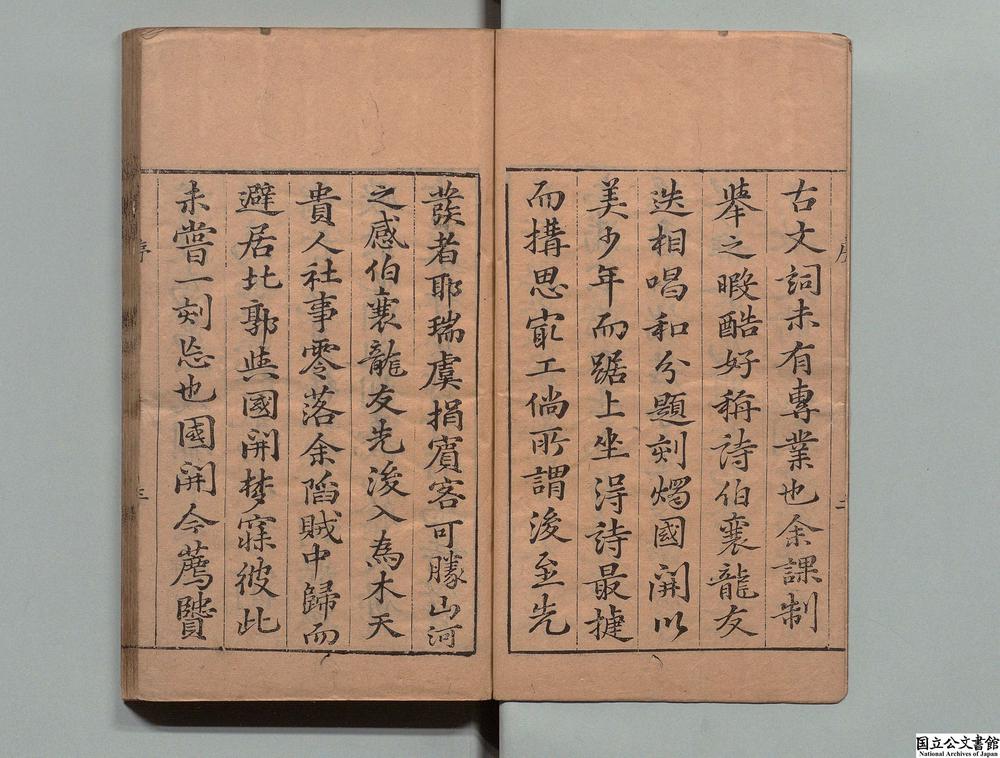 古文詞未有專業也余課制
舉之暇酷好稱詩伯襄龍友
迭相唱和分題刻燭國開以
美少年而踞上坐淂詩最捷
而搆思㝡工倘所謂後至先
發者耶瑞虞捐賔客可勝山河
之感伯襄龍友先後入為木天
貴人社事零落余陷賊中歸而
避居北郭與國開夢寐彼此
未嘗一刻忘也國開今薦賢
序
序
国立公文書館
National Archives of Japan